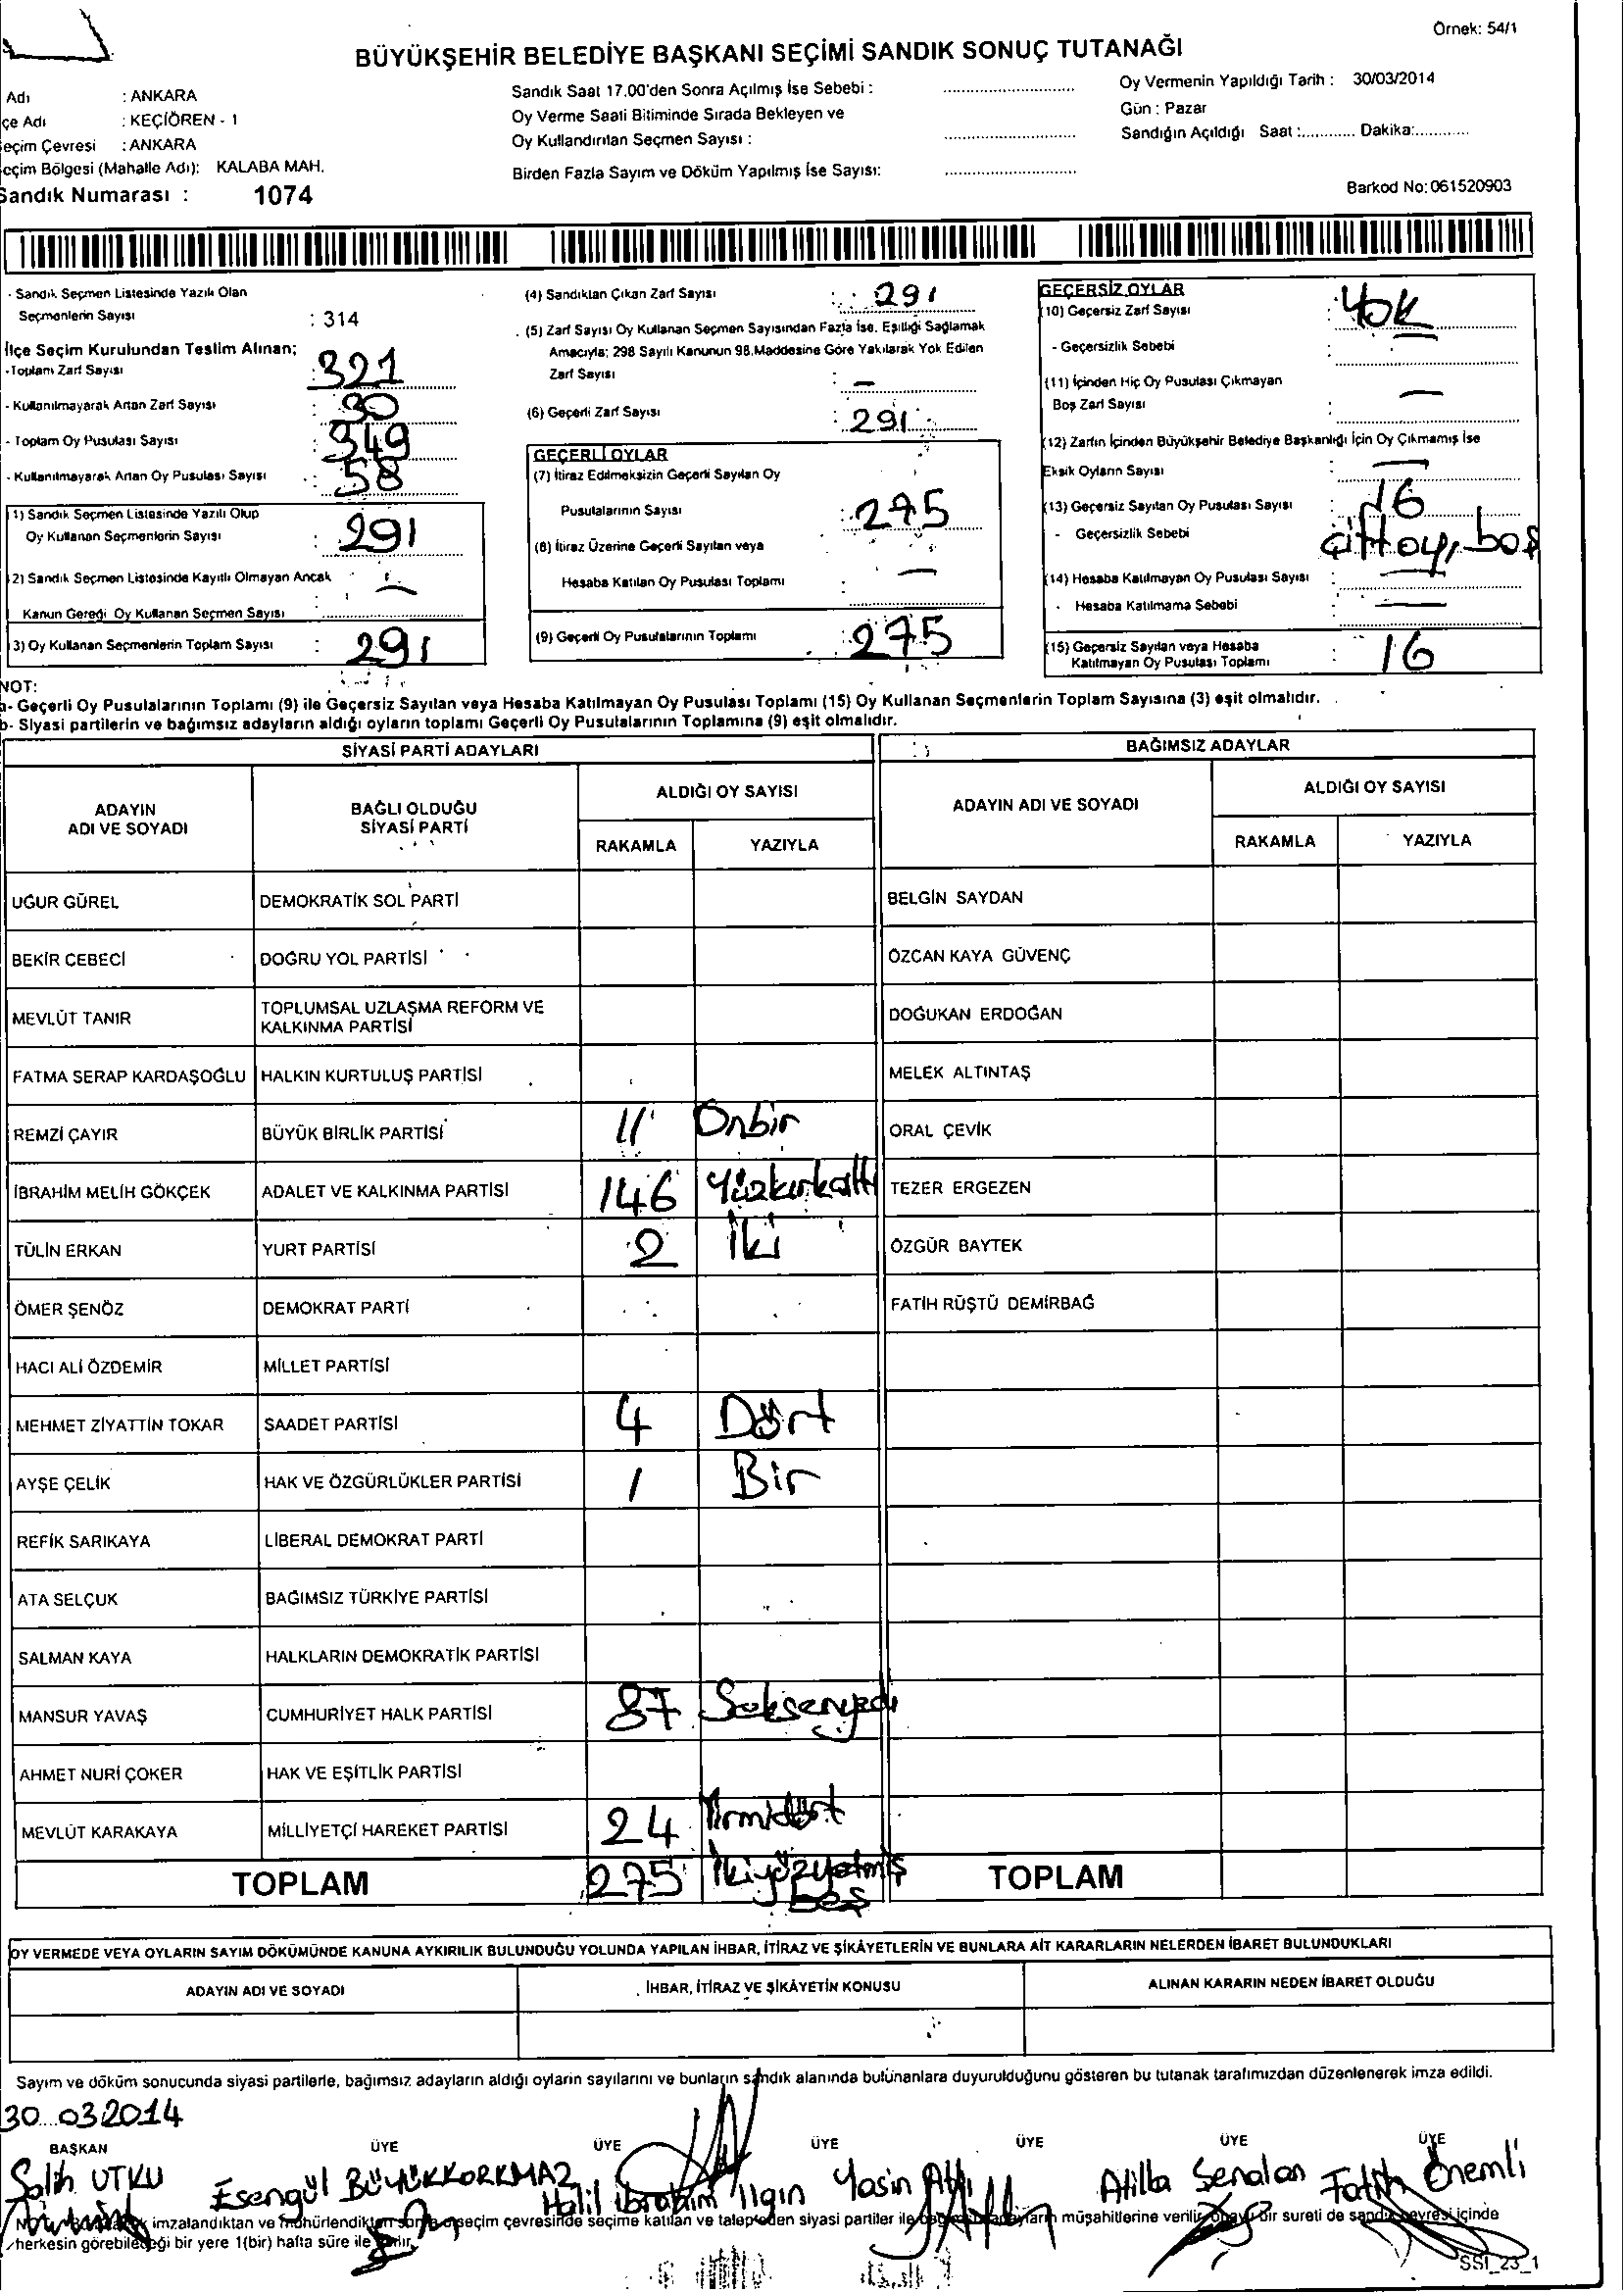 Örnek: 54/1
BÜYÜKŞEHİR BELEDİYE BAŞKANI SEÇİMİ SANDIK SONUÇ TUTANAĞI
Adı : ANKARA
çe Adı : KEÇİÖREN - 1
eçim Çevresi : ANKARA
eçim Bölgesi (Mahalle Adı): KALABA MAH.
Sandık Numarası : 1074
Sandık Saat 17.00'den Sonra Açılmış İse Sebebi :
Oy Verme Saati Bitiminde Sırada Bekleyen ve
Oy Kullandırılan Seçmen Sayısı :
Birden Fazla Sayım ve Döküm Yapılmış İse Sayısı:
Oy Vermenin Yapıldığı Tarih : 30/03/2014
Gün : Pazar
Sandığın Açıldığı Saat :............ Dakika:............
Barkod No: 061520903
- Sandık Seçmen Listesinde Yazılı Olan
Seçmenlerin Sayısı : 314
İlçe Seçim Kurulundan Teslim Alınan;
-Toplam Zarf Sayısı : 321
- Kullanılmayarak Artan Zarf Sayısı : 30
- Toplam Oy Pusulası Sayısı : 349
- Kullanılmayarak Artan Oy Pusulası Sayısı : 58
1) Sandık Seçmen Listesinde Yazılı Olup
Oy Kullanan Seçmenlerin Sayısı : 291
2) Sandık Seçmen Listesinde Kayıtlı Olmayan Ancak
Kanun Gereği Oy Kullanan Seçmen Sayısı : —
3) Oy Kullanan Seçmenlerin Toplam Sayısı : 291
(4) Sandıktan Çıkan Zarf Sayısı : 291
(5) Zarf Sayısı Oy Kullanan Seçmen Sayısından Fazla İse, Eşitliği Sağlamak
Amacıyla; 298 Sayılı Kanunun 98.Maddesine Göre Yakılarak Yok Edilen
Zarf Sayısı : —
(6) Geçerli Zarf Sayısı : 291
GEÇERLİ OYLAR
(7) İtiraz Edilmeksizin Geçerli Sayılan Oy
Pusulalarının Sayısı : 275
(8) İtiraz Üzerine Geçerli Sayılan veya
Hesaba Katılan Oy Pusulası Toplamı : —
(9) Geçerli Oy Pusulalarının Toplamı : 275
GEÇERSİZ OYLAR
(10) Geçersiz Zarf Sayısı : Yok
- Geçersizlik Sebebi :
(11) İçinden Hiç Oy Pusulası Çıkmayan
Boş Zarf Sayısı : —
(12) Zarfın İçinden Büyükşehir Belediye Başkanlığı İçin Oy Çıkmamış İse
Eksik Oyların Sayısı : —
(13) Geçersiz Sayılan Oy Pusulası Sayısı : 16
- Geçersizlik Sebebi : çift oy, boş
(14) Hesaba Katılmayan Oy Pusulası Sayısı : —
- Hesaba Katılmama Sebebi : —
(15) Geçersiz Sayılan veya Hesaba
Katılmayan Oy Pusulası Toplamı : 16
NOT:
a- Geçerli Oy Pusulalarının Toplamı (9) ile Geçersiz Sayılan veya Hesaba Katılmayan Oy Pusulası Toplamı (15) Oy Kullanan Seçmenlerin Toplam Sayısına (3) eşit olmalıdır.
b- Siyasi partilerin ve bağımsız adayların aldığı oyların toplamı Geçerli Oy Pusulalarının Toplamına (9) eşit olmalıdır.
SİYASİ PARTİ ADAYLARI BAĞIMSIZ ADAYLAR
ADAYIN ADI VE SOYADI BAĞLI OLDUĞU SİYASİ PARTİ ALDIĞI OY SAYISI ADAYIN ADI VE SOYADI ALDIĞI OY SAYISI
RAKAMLA YAZIYLA RAKAMLA YAZIYLA
UĞUR GÜREL DEMOKRATİK SOL PARTİ BELGİN SAYDAN
BEKİR CEBECİ DOĞRU YOL PARTİSİ ÖZCAN KAYA GÜVENÇ
MEVLÜT TANIR TOPLUMSAL UZLAŞMA REFORM VE KALKINMA PARTİSİ DOĞUKAN ERDOĞAN
FATMA SERAP KARDAŞOĞLU HALKIN KURTULUŞ PARTİSİ MELEK ALTINTAŞ
REMZİ ÇAYIR BÜYÜK BİRLİK PARTİSİ 11 Onbir ORAL ÇEVİK
İBRAHİM MELİH GÖKÇEK ADALET VE KALKINMA PARTİSİ 146 Yüzkırkaltı TEZER ERGEZEN
TÜLİN ERKAN YURT PARTİSİ 2 İki ÖZGÜR BAYTEK
ÖMER ŞENÖZ DEMOKRAT PARTİ FATİH RÜŞTÜ DEMİRBAĞ
HACI ALİ ÖZDEMİR MİLLET PARTİSİ
MEHMET ZİYATTİN TOKAR SAADET PARTİSİ 4 Dört
AYŞE ÇELİK HAK VE ÖZGÜRLÜKLER PARTİSİ 1 Bir
REFİK SARIKAYA LİBERAL DEMOKRAT PARTİ
ATA SELÇUK BAĞIMSIZ TÜRKİYE PARTİSİ
SALMAN KAYA HALKLARIN DEMOKRATİK PARTİSİ
MANSUR YAVAŞ CUMHURİYET HALK PARTİSİ 87 Seksenyedi
AHMET NURİ ÇOKER HAK VE EŞİTLİK PARTİSİ
MEVLÜT KARAKAYA MİLLİYETÇİ HAREKET PARTİSİ 24 Yirmidört
TOPLAM 275 İkiyüzyetmiş Beş TOPLAM
OY VERMEDE VEYA OYLARIN SAYIM DÖKÜMÜNDE KANUNA AYKIRILIK BULUNDUĞU YOLUNDA YAPILAN İHBAR, İTİRAZ VE ŞİKÂYETLERİN VE BUNLARA AİT KARARLARIN NELERDEN İBARET BULUNDUKLARI
ADAYIN ADI VE SOYADI İHBAR, İTİRAZ VE ŞİKÂYETİN KONUSU ALINAN KARARIN NEDEN İBARET OLDUĞU
Sayım ve döküm sonucunda siyasi partilerle, bağımsız adayların aldığı oyların sayılarını ve bunların sandık alanında bulunanlara duyurulduğunu gösteren bu tutanak tarafımızdan düzenlenerek imza edildi.
30.03.2014
BAŞKAN ÜYE ÜYE ÜYE ÜYE ÜYE ÜYE
Salih UTKU Esengül BÜYÜKKORKMAZ Halil İbrahim Ilgın Yasin Atlı Atilla Şenalan Fatih Önemli
imzalandıktan ve mühürlendikten sonra seçim çevresinde seçime katılan ve talep eden siyasi partiler ile müşahitlerine verilir, onaylı bir sureti de sandık çevresi içinde
herkesin görebileceği bir yere 1(bir) hafta süre ile
SSI_23_1